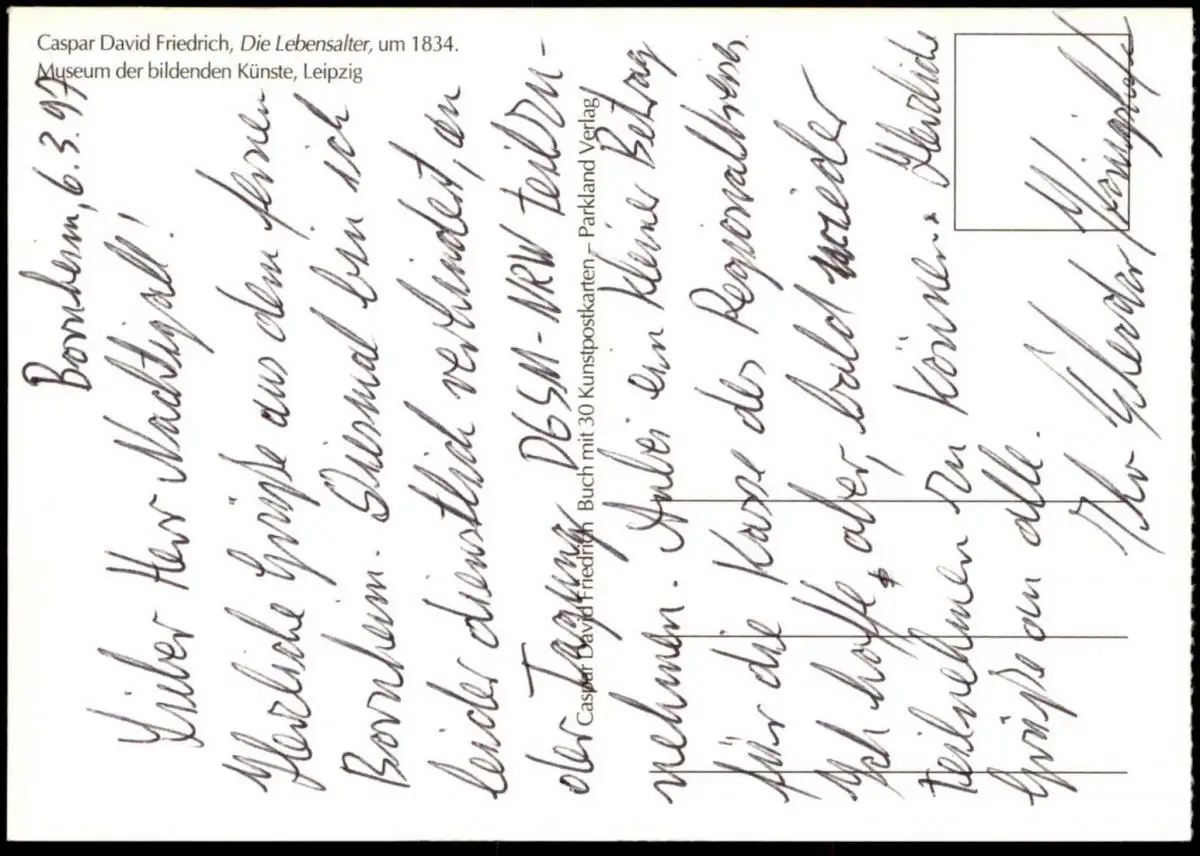 Caspar David Friedrich, Die Lebensalter, um 1834.
Museum der bildenden Künste, Leipzig
Caspar David Friedrich Buch mit 30 Kunstpostkarten – Parkland Verlag
Bornheim, 6.3.97
Lieber Herr Nachtigall!
Herzliche Grüße aus dem fernen
Bornheim. Diesmal bin ich
leider dienstlich verhindert, an
der Tagung DGSM-NRW teilzu-
nehmen. Anbei ein kleiner Betrag
für die Kasse des Regionalkreises.
Ich hoffe aber, bald wieder
teilnehmen zu können. Herzliche
Grüße an alle.
Ihr